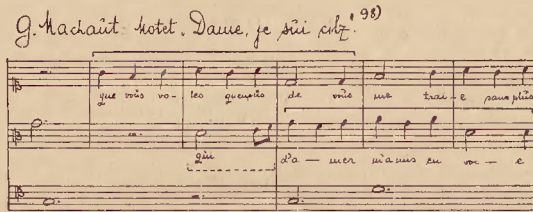 G. Machaut Motet „Dame, je sui cilz". 98)
que vous vo - les quenplus de vous me trai - e sans plus
qui d'a — mer m'a mis en voi — e